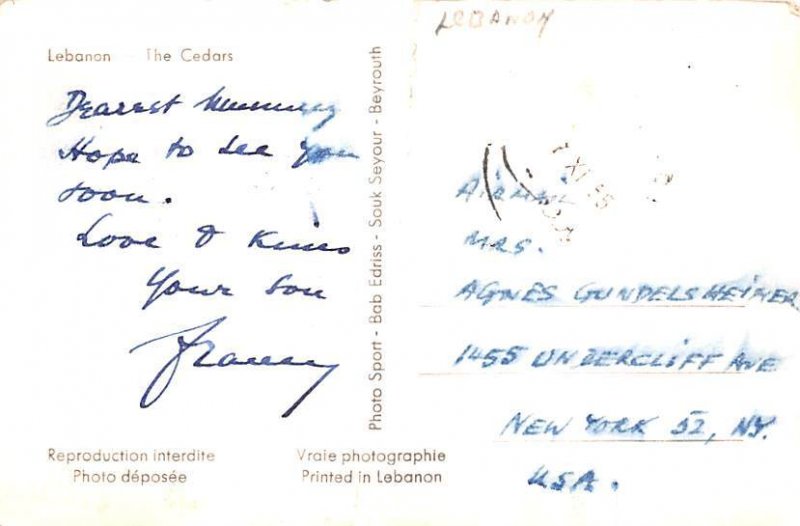 LEBANON
Lebanon The Cedars
Dearest Mummy
Hope to see you
soon.
Love & Kisses
Your Son
Photo Sport - Bab Edriss - Souk Seyour - Beyrouth
AIRMAIL
MRS.
AGNES GUNDELSHEIMER
1455 UNDERCLIFF AVE
NEW YORK 52, NY.
USA.
Reproduction interdite
Photo déposée
Vraie photographie
Printed in Lebanon